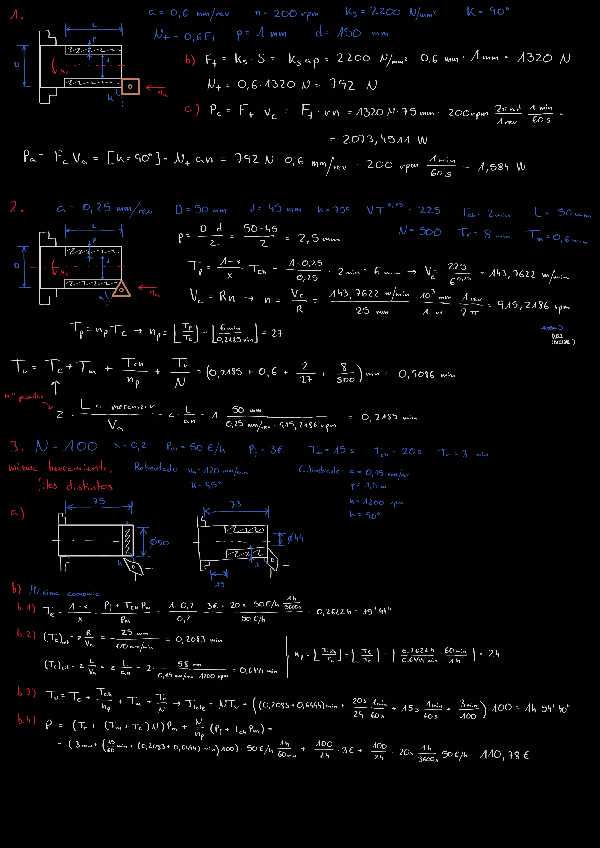 1. a = 0,6 mm/rev n = 200 rpm Ks = 2200 N/mm² K = 90°
Nt = 0,6Ft p = 1 mm d = 150 mm
b) Ft = Ks · S = Ks ap = 2200 N/mm² 0,6 mm · 1 mm = 1320 N
Nt = 0,6 · 1320 N = 792 N
c) Pc = Ft Vc = Ft · rn = 1320 N · 75 mm · 200 rpm 2π rad/1 rev 1 min/60 s =
= 2073,4511 W
Pa = Fc Va = [K = 90°] = Nt an = 792 N · 0,6 mm/rev · 200 rpm 1 min/60 s = 1,584 W
2. a = 0,25 mm/rev D = 50 mm d = 45 mm K = 75° VT^0,25 = 225 Tch = 2 min L = 50 mm
N = 500 Tr = 8 min Tm = 0,6 min
p = D-d/2 = 50-45/2 = 2,5 mm
Tp = 1-x/x Tch = 1-0,25/0,25 · 2 min = 6 min → Vc = 225/6^0,25 = 143,7622 m/min
Vc = Rn → n = Vc/R = 143,7622 m/min/25 mm 10³ mm/1 m 1 rev/2π = 915,2186 rpm
Tp = np Tc → np = ⌊Tp/Tc⌋ = ⌊6 min/0,2185 min⌋ = 27
Tu = Tc + Tm + Tch/np + Tr/N = (0,2185 + 0,6 + 2/27 + 8/500) min = 0,9086 min
nº pasadas
2 · L/Va = 2 · L/an = 2 · 50 mm/0,25 mm/rev · 915,2186 rpm = 0,2185 min
3. N = 100 x = 0,2 Pm = 50 €/h Pf = 3€ Tm = 15 s Tch = 20s Tr = 3 min
misma herramienta, Refrentado: Va = 120 mm/min Cilindrado: a = 0,15 mm/rev
filos distintos K = 95° p = 1,5 mm
n = 1200 rpm
K = 50°
a) 75 73
Ø50 Ø44
15 3
b) Máxima economía
b.1) Te = 1-x/x · Pf + Tch Pm/Pm = 1-0,2/0,2 · 3€ + 20s · 50 €/h 1h/3600s/50 €/h = 0,2622 h = 15' 44"
b.2) (Tc)ref = R/Va = 25 mm/120 mm/min = 0,2083 min
(Tc)cil = 2 L/Va = 2 L/an = 2 · 58 mm/0,15 mm/rev 1200 rpm = 0,6444 min
np = ⌊0,2622 h/0,6444 min 60 min/1h⌋ = 24
b.3) Tu = Tc + Tch/np + Tm + Tr/N → Tlote = NTu = ((0,2083 + 0,6444) min + 20s/24 1 min/60s + 15s 1 min/60s + 3 min/100) 100 = 1h 54' 40"
b.4) P = (Tr + (Tm + Tc)N) Pm + N/np (Pf + Tch Pm) =
= (3 min + (15/60 min + (0,2083 + 0,6444) min) 100) · 50 €/h 1h/60 min + 100/24 · 3€ + 100/24 · 20s 1h/3600s 50 €/h = 110,78 €